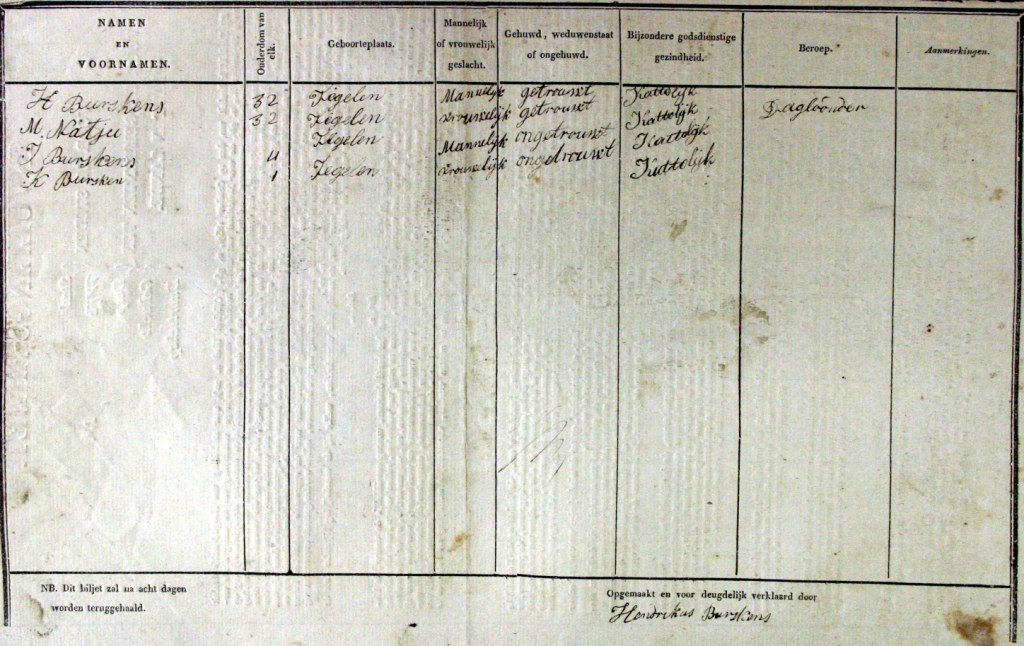 NAMEN EN VOORNAMEN. Ouderdom van elk. Geboorteplaats. Mannelijk of vrouwelijk geslacht. Gehuwd, weduwenstaat of ongehuwd. Bijzondere godsdienstige gezindheid. Beroep. Aanmerkingen.
H Burskens 32 Zegelen Mannelyk getrouwt Kattolyk Dagloonder
M. Natju 32 Zegelen vrouwelyk getrouwt Kattolyk
J Burskens 4 Zegelen Mannelyk ongetrouwt Kattolyk
K Bursken 1 Zegelen vrouwelyk ongetrouwt Kattolyk
NB. Dit biljet zal na acht dagen
worden teruggehaald.
Opgemaakt en voor deugdelijk verklaard door
Hendrikus Burskens